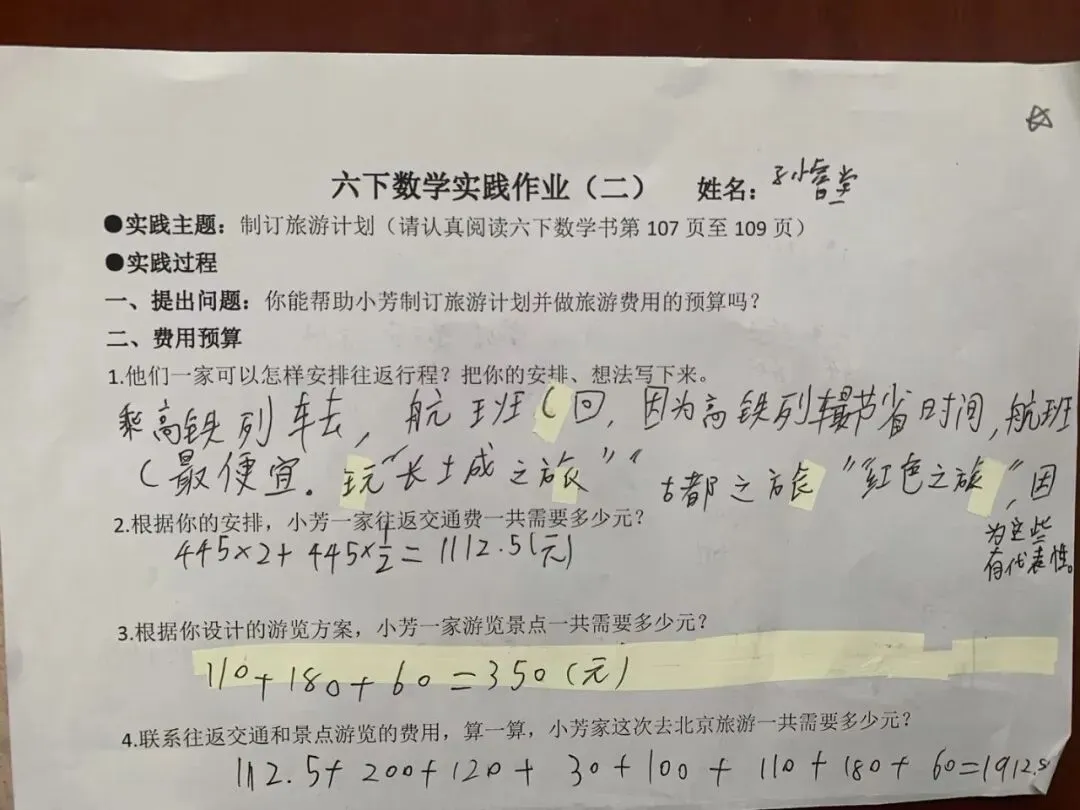 六下数学实践作业（二） 姓名：
●实践主题：制订旅游计划（请认真阅读六下数学书第 107 页至 109 页）
●实践过程
一、提出问题：你能帮助小芳制订旅游计划并做旅游费用的预算吗？
二、费用预算
1.他们一家可以怎样安排往返行程？把你的安排、想法写下来。
乘高铁列车去，航班C回，因为高铁列车最节省时间，航班
C最便宜。玩“长城之旅”“古都之旅”“红色之旅”，因
为这些
有代表性。
2.根据你的安排，小芳一家往返交通费一共需要多少元？
445×2+445×1/2=1112.5(元)
3.根据你设计的游览方案，小芳一家游览景点一共需要多少元？
110+180+60=350(元)
4.联系往返交通和景点游览的费用，算一算，小芳家这次去北京旅游一共需要多少元？
1112.5+200+120+30+100+110+180+60=1912.5